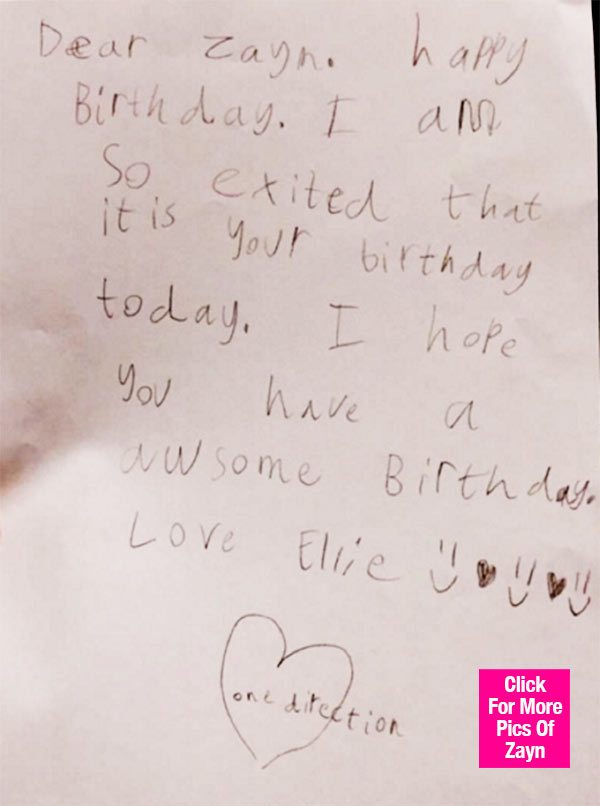 Dear Zayn. happy
Birthday. I am
So exited that
it is your birthday
today. I hope
you have a
awsome Birthday.
Love Ellie
one direction
Click
For More
Pics Of
Zayn